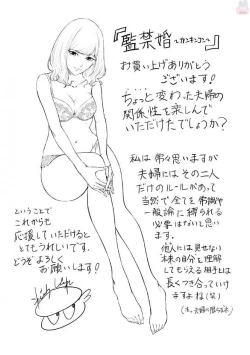 『監禁婚〜カンキンコン〜』
お買い上げありがとう
ございます!
…ちょっと変わった夫婦の
関係性を楽しんで
いただけたでしょうか?
私は常々思いますが
夫婦にはその二人
だけのルールがあって
当然で全てを常識や
一般論に縛られる
必要はないと思います。
他人には見せない
本来の自分を理解
してもらえる相手とは
長くつき合っていけ
ますよね(笑)
ということで
これからも
応援していただけると
とてもうれしいです。
どうぞよろしく
お願いします!